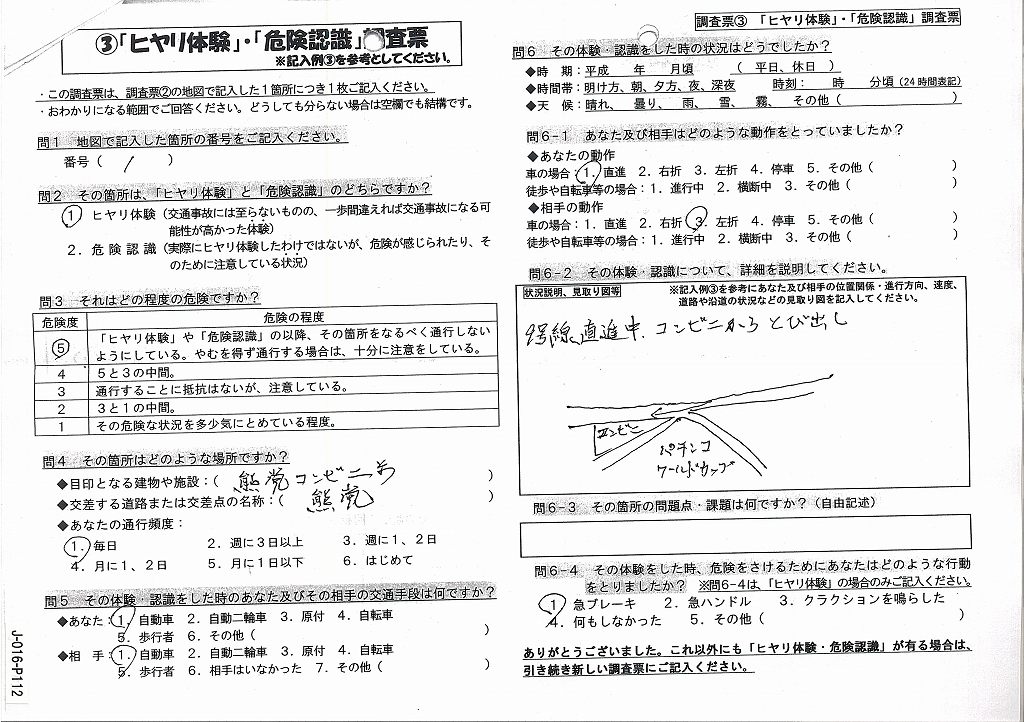 ③「ヒヤリ体験」・「危険認識」調査票
※記入例③を参考としてください。
・この調査票は、調査票②の地図で記入した1箇所につき1枚ご記入ください。
・おわかりになる範囲でご回答ください。どうしても分らない場合は空欄でも結構です。
問1 地図で記入した箇所の番号をご記入ください。
番号( 1 )
問2 その箇所は、「ヒヤリ体験」と「危険認識」のどちらですか?
1 ヒヤリ体験(交通事故には至らないものの、一歩間違えれば交通事故になる可
能性が高かった体験)
2.危険認識(実際にヒヤリ体験したわけではないが、危険が感じられたり、そ
のために注意している状況)
問3 それはどの程度の危険ですか?
危険度 危険の程度
5 「ヒヤリ体験」や「危険認識」の以降、その箇所をなるべく通行しない
ようにしている。やむを得ず通行する場合は、十分に注意をしている。
4 5と3の中間。
3 通行することに抵抗はないが、注意している。
2 3と1の中間。
1 その危険な状況を多少気にとめている程度。
問4 その箇所はどのような場所ですか?
◆目印となる建物や施設:( 熊党コンビニ前 )
◆交差する道路または交差点の名称:( 熊党 )
◆あなたの通行頻度:
1.毎日 2.週に3日以上 3.週に1、2日
4.月に1、2日 5.月に1日以下 6.はじめて
問5 その体験・認識をした時のあなた及びその相手の交通手段は何ですか?
◆あなた:1.自動車 2.自動二輪車 3.原付 4.自転車
5.歩行者 6.その他( )
◆相 手:1.自動車 2.自動二輪車 3.原付 4.自転車
5.歩行者 6.相手はいなかった 7.その他( )
J-016-P112
調査票③ 「ヒヤリ体験」・「危険認識」調査票
問6 その体験・認識をした時の状況はどうでしたか?
◆時 期:平成 年 月頃 ( 平日、休日 )
◆時間帯:明け方、朝、夕方、夜、深夜 時刻: 時 分頃(24時間表記)
◆天 候:晴れ、 曇り、 雨、 雪、 霧、 その他( )
問6-1 あなた及び相手はどのような動作をとっていましたか?
◆あなたの動作
車の場合:1.直進 2.右折 3.左折 4.停車 5.その他( )
徒歩や自転車等の場合:1.進行中 2.横断中 3.その他( )
◆相手の動作
車の場合:1.直進 2.右折 3.左折 4.停車 5.その他( )
徒歩や自転車等の場合:1.進行中 2.横断中 3.その他( )
問6-2 その体験・認識について、詳細を説明してください。
状況説明、見取り図等 ※記入例③を参考にあなた及び相手の位置関係・進行方向、速度、
道路や沿道の状況などの見取り図を記入してください。
号線直進中、コンビニからとび出し
コンビニ
パチンコ
ワールドカップ
問6-3 その箇所の問題点・課題は何ですか?(自由記述)
問6-4 その体験をした時、危険をさけるためにあなたはどのような行動
をとりましたか? ※問6-4は、「ヒヤリ体験」の場合のみご記入ください。
1 急ブレーキ 2.急ハンドル 3.クラクションを鳴らした
4.何もしなかった 5.その他( )
ありがとうございました。これ以外にも「ヒヤリ体験・危険認識」が有る場合は、
引き続き新しい調査票にご記入ください。